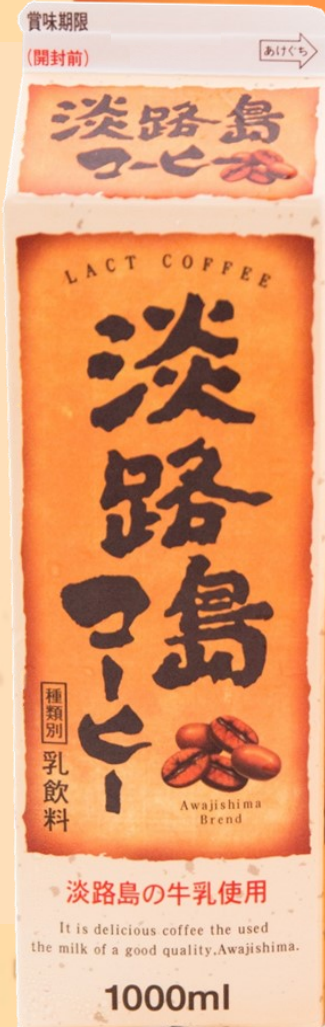 賞味期限
(開封前)
あけぐち
淡路島
コーヒー
LACT COFFEE
淡路島
コーヒー
種類別
乳飲料
Awajishima
Brend
淡路島の牛乳使用
It is delicious coffee the used
the milk of a good quality.Awajishima.
1000ml